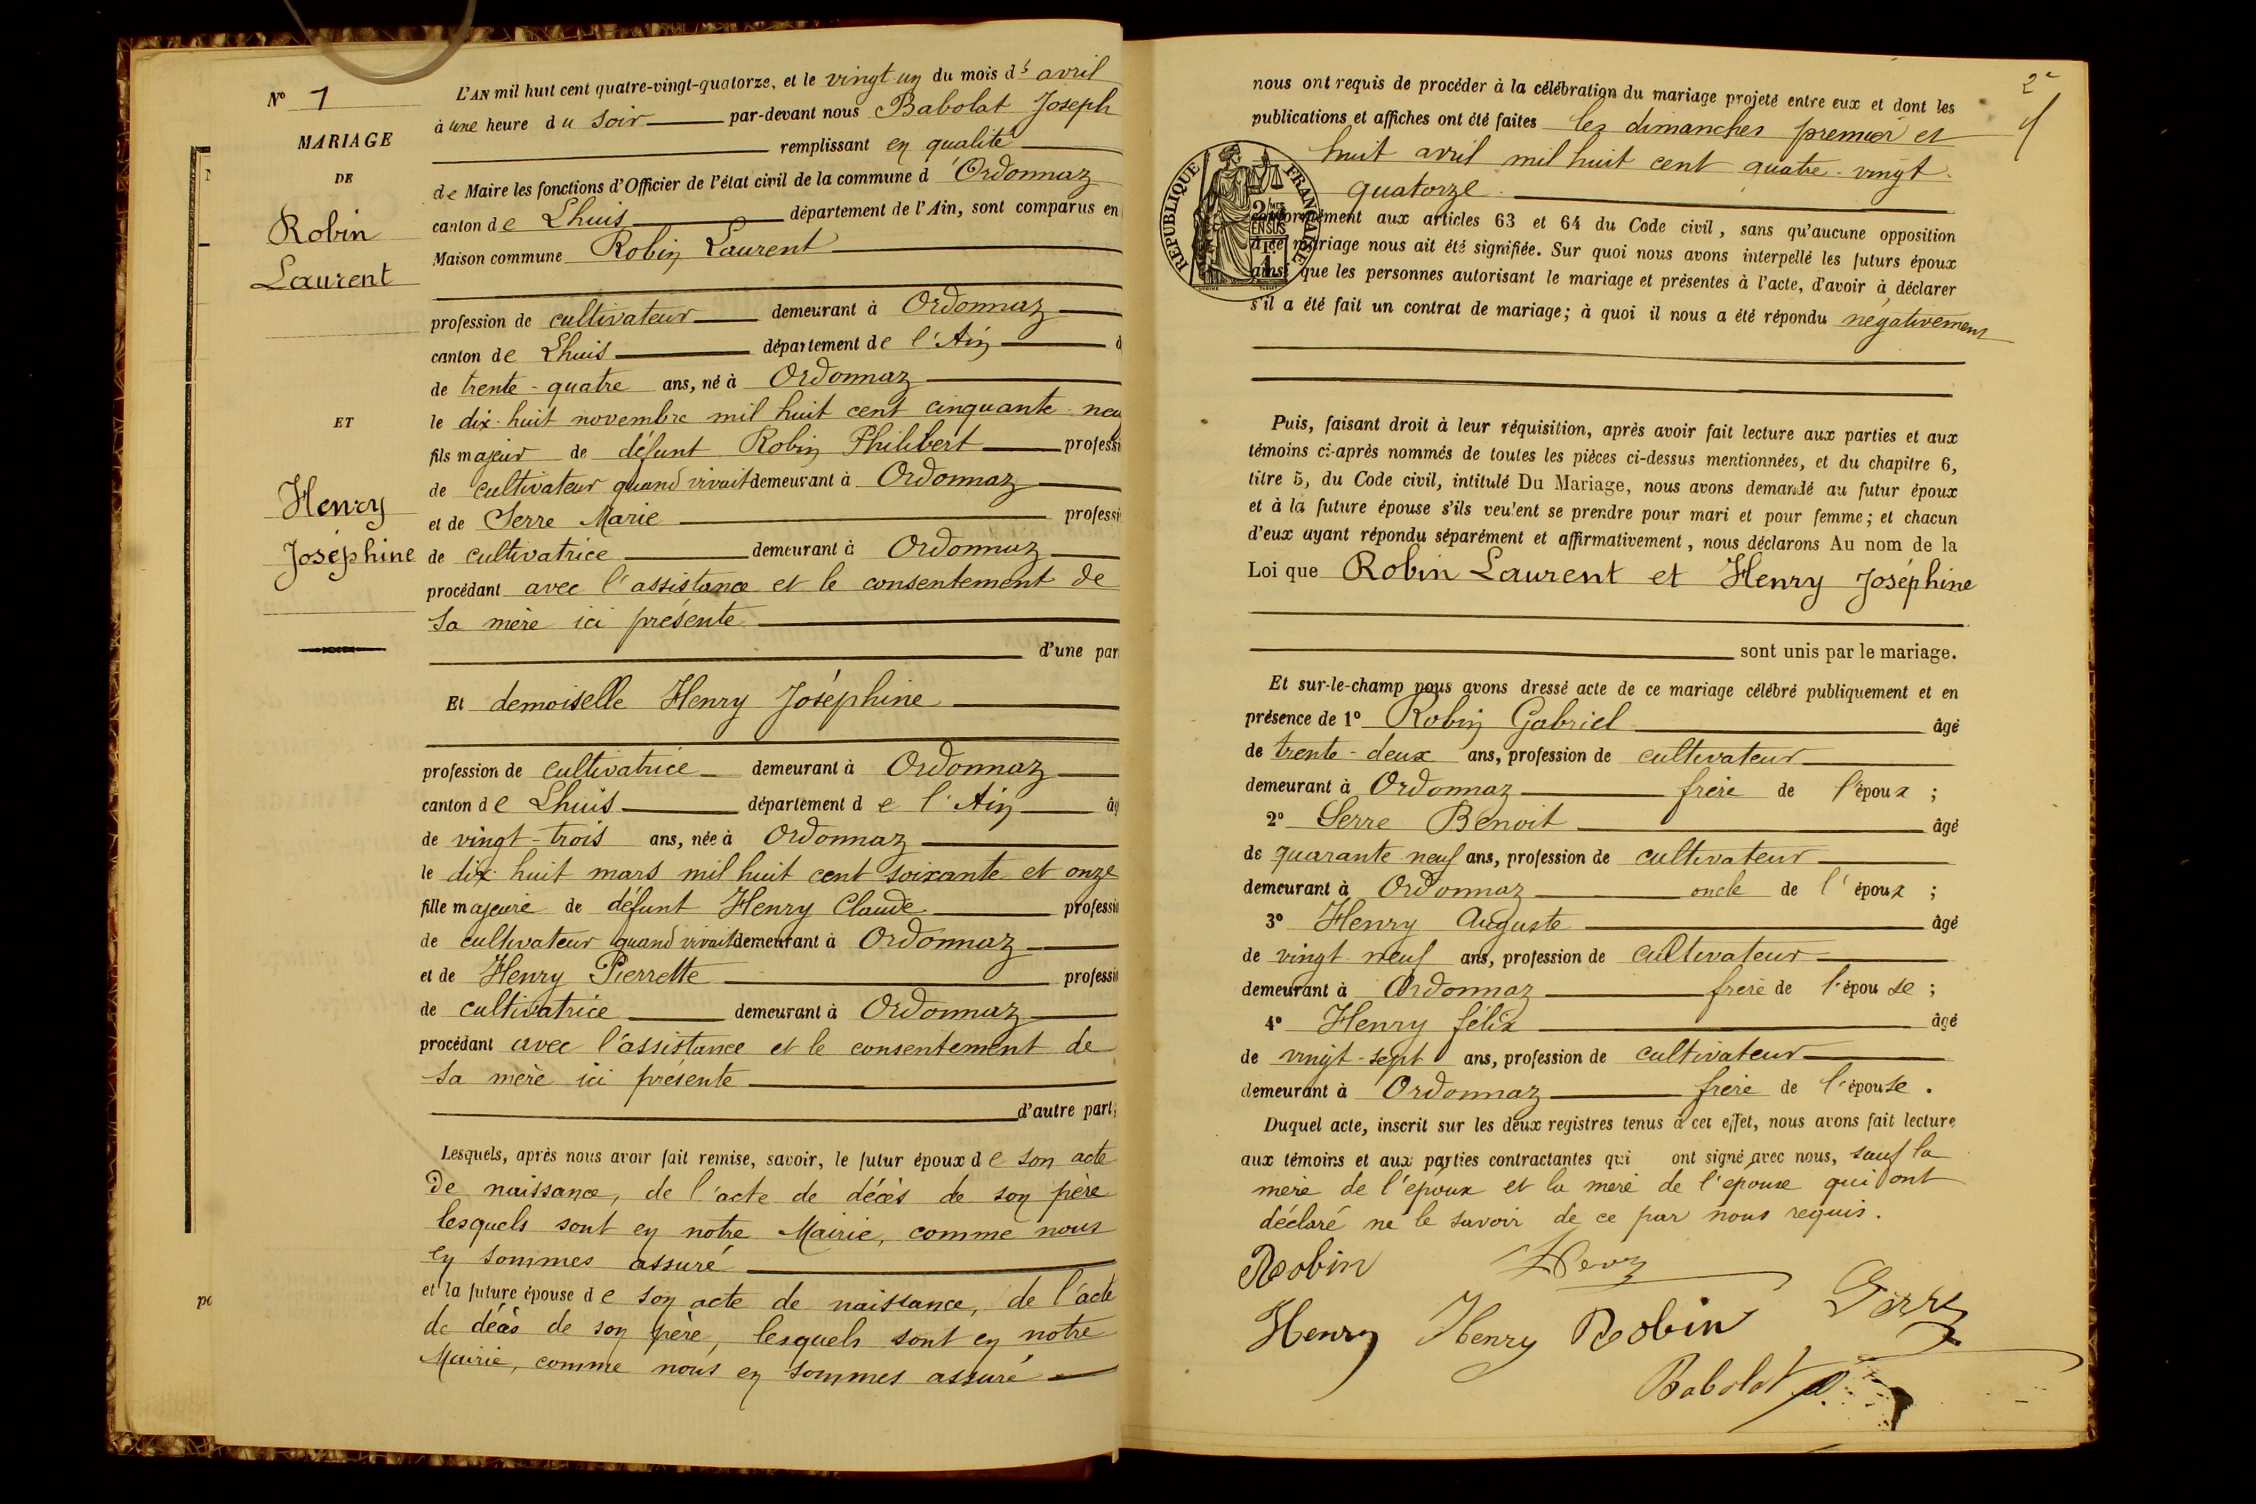 N° 1
MARIAGE
DE
Robin
Laurent
ET
Henry
Joséphine
L'AN mil huit cent quatre-vingt-quatorze, et le vingt un du mois d' avril
à une heure du soir par-devant nous Babolat Joseph
remplissant en qualité
de Maire les fonctions d'Officier de l'état civil de la commune d'Ordonnaz
canton de Lhuis département de l'Ain, sont comparus en
Maison commune Robin Laurent
profession de cultivateur demeurant à Ordonnaz
canton de Lhuis département de l'Ain
de trente-quatre ans, né à Ordonnaz
le dix-huit novembre mil huit cent cinquante-neu
fils majeur de défunt Robin Philibert professi
de cultivateur quand vivait demeurant à Ordonnaz
et de Serre Marie professi
de cultivatrice demeurant à Ordonnaz
procédant avec l'assistance et le consentement de
sa mère ici présente
d'une par
Et demoiselle Henry Joséphine
profession de cultivatrice demeurant à Ordonnaz
canton de Lhuis département de l'Ain âg
de vingt-trois ans, née à Ordonnaz
le dix-huit mars mil huit cent soixante et onze
fille majeure de défunt Henry Claude professi
de cultivateur quand vivait demeurant à Ordonnaz
et de Henry Pierrette professi
de cultivatrice demeurant à Ordonnaz
procédant avec l'assistance et le consentement de
sa mère ici présente
d'autre part;
Lesquels, après nous avoir fait remise, savoir, le futur époux de son acte
de naissance, de l'acte de décès de son père
lesquels sont en notre Mairie, comme nous
en sommes assuré
et la future épouse de son acte de naissance, de l'acte
de décès de son père, lesquels sont en notre
Mairie, comme nous en sommes assuré
2e
nous ont requis de procéder à la célébration du mariage projeté entre eux et dont les
publications et affiches ont été faites les dimanches premier et
huit avril mil huit cent quatre-vingt-
quatorze
RÉPUBLIQUE FRANÇAISE
conformément aux articles 63 et 64 du Code civil, sans qu'aucune opposition
à ce mariage nous ait été signifiée. Sur quoi nous avons interpellé les futurs époux
ainsi que les personnes autorisant le mariage et présentes à l'acte, d'avoir à déclarer
s'il a été fait un contrat de mariage; à quoi il nous a été répondu négativement
Puis, faisant droit à leur réquisition, après avoir fait lecture aux parties et aux
témoins ci-après nommés de toutes les pièces ci-dessus mentionnées, et du chapitre 6,
titre 5, du Code civil, intitulé Du Mariage, nous avons demandé au futur époux
et à la future épouse s'ils veulent se prendre pour mari et pour femme; et chacun
d'eux ayant répondu séparément et affirmativement, nous déclarons Au nom de la
Loi que Robin Laurent et Henry Joséphine
sont unis par le mariage.
Et sur-le-champ nous avons dressé acte de ce mariage célébré publiquement et en
présence de 1° Robin Gabriel âgé
de trente-deux ans, profession de cultivateur
demeurant à Ordonnaz frère de l'époux ;
2° Serre Benoit âgé
de quarante neuf ans, profession de cultivateur
demeurant à Ordonnaz oncle de l'époux ;
3° Henry Auguste âgé
de vingt neuf ans, profession de cultivateur
demeurant à Ordonnaz frère de l'épouse ;
4° Henry félix âgé
de vingt-sept ans, profession de cultivateur
demeurant à Ordonnaz frère de l'épouse.
Duquel acte, inscrit sur les deux registres tenus à cet effet, nous avons fait lecture
aux témoins et aux parties contractantes qui ont signé avec nous, sauf la
mère de l'époux et la mère de l'épouse qui ont
déclaré ne le savoir de ce par nous requis.
Robin
Henry Henry Robin Serre
Babolat